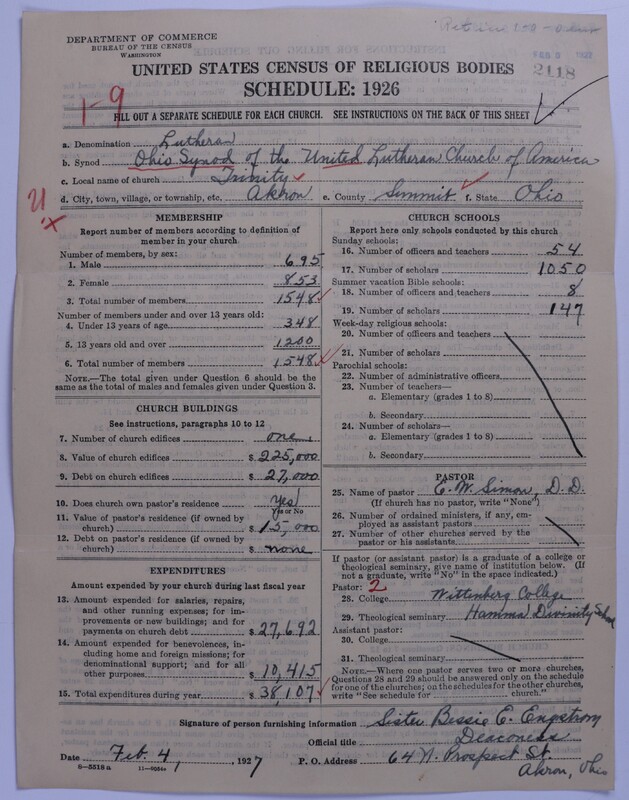 DEPARTMENT OF COMMERCE
BUREAU OF THE CENSUS
WASHINGTON
2118
UNITED STATES CENSUS OF RELIGIOUS BODIES
SCHEDULE: 1926
1-9
FILL OUT A SEPARATE SCHEDULE FOR EACH CHURCH. SEE INSTRUCTIONS ON THE BACK OF THIS SHEET
a. Denomination Lutheran
b. Synod Ohio Synod of the United Lutheran Church of America
c. Local name of church Trinity
d. City, town, village, or township, etc. Akron e. County Summit f. State Ohio
MEMBERSHIP
Report number of members according to definition of
member in your church.
Number of members, by sex:
1. Male 695
2. Female 853
3. Total number of members 1548
Number of members under and over 13 years old:
4. Under 13 years of age 348
5. 13 years old and over 1200
6. Total number of members 1548
NOTE.—The total given under Question 6 should be
same as the total of males and females given under Question 3.
CHURCH BUILDINGS
See instructions, paragraphs 10 to 12
7. Number of church edifices one
8. Value of church edifices $ 225,000
9. Debt on church edifices $ 27,000
10. Does church own pastor's residence yes
Yes or No
11. Value of pastor's residence (if owned by
church) $ 15,000
12. Debt on pastor's residence (if owned by
church) $ none
EXPENDITURES
Amount expended by your church during last fiscal year
13. Amount expended for salaries, repairs,
and other running expenses; for im-
provements or new buildings; and for
payments on church debt $ 27,692
14. Amount expended for benevolences, in-
cluding home and foreign missions; for
denominational support; and for all
other purposes $ 10,415
15. Total expenditures during year $ 38,107
CHURCH SCHOOLS
Report here only schools conducted by this church
Sunday schools:
16. Number of officers and teachers 54
17. Number of scholars 1050
Summer vacation Bible schools:
18. Number of officers and teachers 8
19. Number of scholars 147
Week-day religious schools:
20. Number of officers and teachers
21. Number of scholars
Parochial schools:
22. Number of administrative officers
23. Number of teachers—
a. Elementary (grades 1 to 8)
b. Secondary
24. Number of scholars—
a. Elementary (grades 1 to 8)
b. Secondary
PASTOR
25. Name of pastor E. W. Simon, D. D.
(If church has no pastor, write "None")
26. Number of ordained ministers, if any, em-
ployed as assistant pastors
27. Number of other churches served by the
pastor or his assistants
If pastor (or assistant pastor) is a graduate of a college or
theological seminary, give name of institution below. (If
not a graduate, write "No" in the space indicated.)
Pastor: 2
28. College Wittenberg College
29. Theological seminary Hamma Divinity School
Assistant pastor:
30. College
31. Theological seminary
NOTE.—Where one pastor serves two or more churches,
Questions 28 and 29 should be answered only on the schedule
for one of the churches; on the schedules for the other churches,
write "See schedule for church."
Signature of person furnishing information Sister Bessie E. Engstrom
Official title Deaconess
Date Feb. 4, 1927 P. O. Address 64 N. Prospect St.
Akron, Ohio